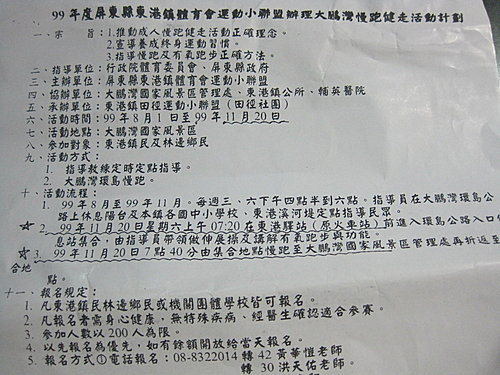 99 年度屏東縣東港鎮體育會運動小聯盟辦理大鵬灣慢跑健走活動計劃
一、宗　旨：1.推動成人慢跑健走活動正確理念。
2.宣導養成終身運動習慣。
3.指導慢跑及有氧跑步正確方法。
二、指導單位：行政院體育委員會、屏東縣政府
三、主辦單位：屏東縣東港鎮體育會運動小聯盟
四、協辦單位：大鵬灣國家風景區管理處、東港鎮公所、輔英醫院
五、承辦單位：東港鎮田徑運動小聯盟（田徑社團）
六、活動時間：99 年 8 月 1 日至 99 年 11 月 20 日
七、活動地點：大鵬灣國家風景區
八、參加對象：東港鎮民及林邊鄉民
九、活動方式：
1. 指導教練定時定點指導。
2. 大鵬灣環島慢跑。
十、活動流程：
1. 99 年 8 月至 99 年 11 月。每週三、六下午四點半到六點。指導員在大鵬灣環島公
路上休息陽台及本鎮各國中小學校、東港溪河堤定點指導民眾。
2. 99 年 11 月 20 日星期六上午 07:20 在東港驛站（原火車站）前進入環島公路入口
息站集合，由指導員帶領做伸展操及講解有氧跑步與功能。
3. 99 年 11 月 20 日 7 點 40 分由集合地點慢跑至大鵬灣國家風景區管理處再折返至
合地
點。
十一、報名規定：
1. 凡東港鎮民林邊鄉民或機關團體學校皆可報名。
2. 凡報名者需身心健康，無特殊疾病、經醫生確認適合參賽。
3. 參加人數以 200 人為限。
4. 以先報名為優先，如有餘額開放給當天報名。
5. 報名方式①電話報名：08-8322014 轉 42 黃華愷老師。
轉 30 洪天佑老師。